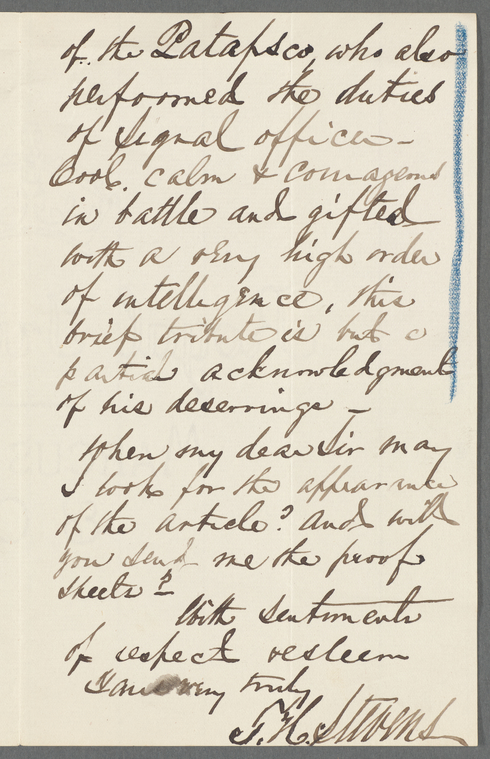 of the Patapsco, who also
performed the duties
of signal officer -
Cool, calm & courageous
in battle and gifted
with a very high order
of intelligence, this
brief tribute is but a
partial acknowledgment
of his deservings -
When my dear Sir may
I look for the appearance
of the article? And will
you send me the proof
sheets?
With sentiments
of respect & esteem
Yours very truly
T. H. Stevens